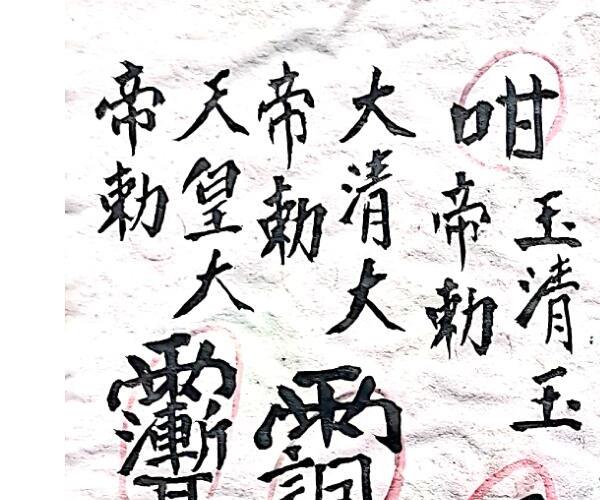 咁
玉清玉
帝勅
大清大
帝勅
天皇大
帝勅